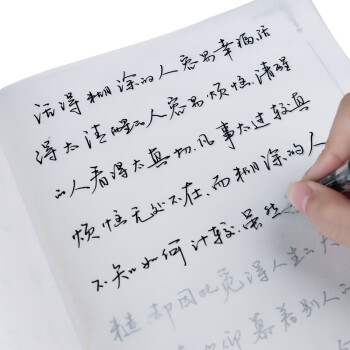 活得糊涂的人容易幸福活
得太清醒的人容易烦恼.清醒
的人看得太真切.凡事太过较真
烦恼无处不在.而糊涂的人
不知如何计较.虽然
糙却因此觅得人生的大
慕着别人的